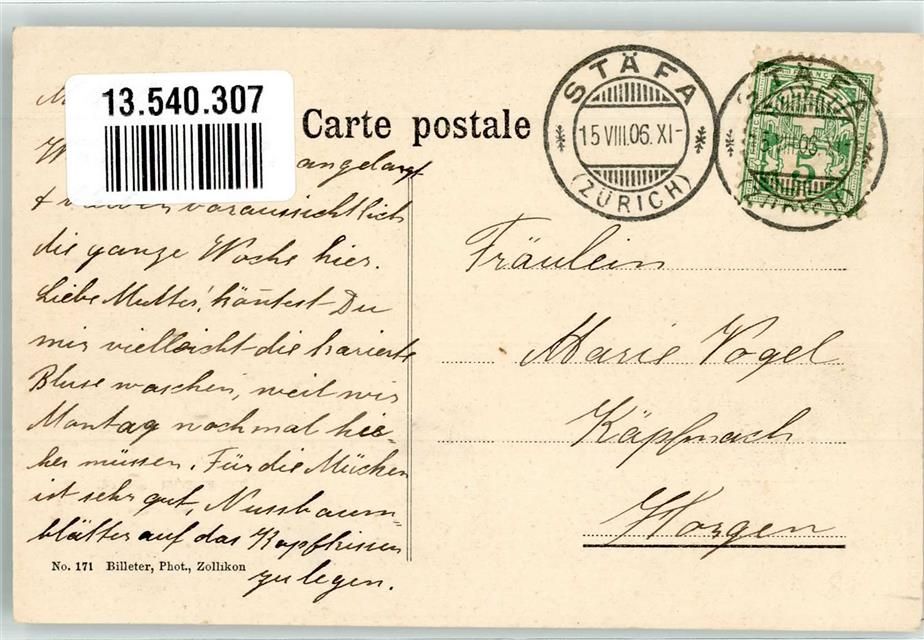 13.540.307
Carte postale
STÄFA
15.VIII.06.XI-
(ZÜRICH)
STÄFA
5
angelangt
voraussichtlich
die ganze Woche hier.
Liebe Mutter! könntest Du
mir vielleicht die karierte
Bluse waschen, weil wir
Montag nochmal hie-
her müssen. Für die Mücken
ist sehr gut, Nussbaum-
blätter auf das Kopfkissen
zu legen.
Fräulein
Marie Vogel
Käpfnach
Horgen
No. 171 Billeter, Phot., Zollikon